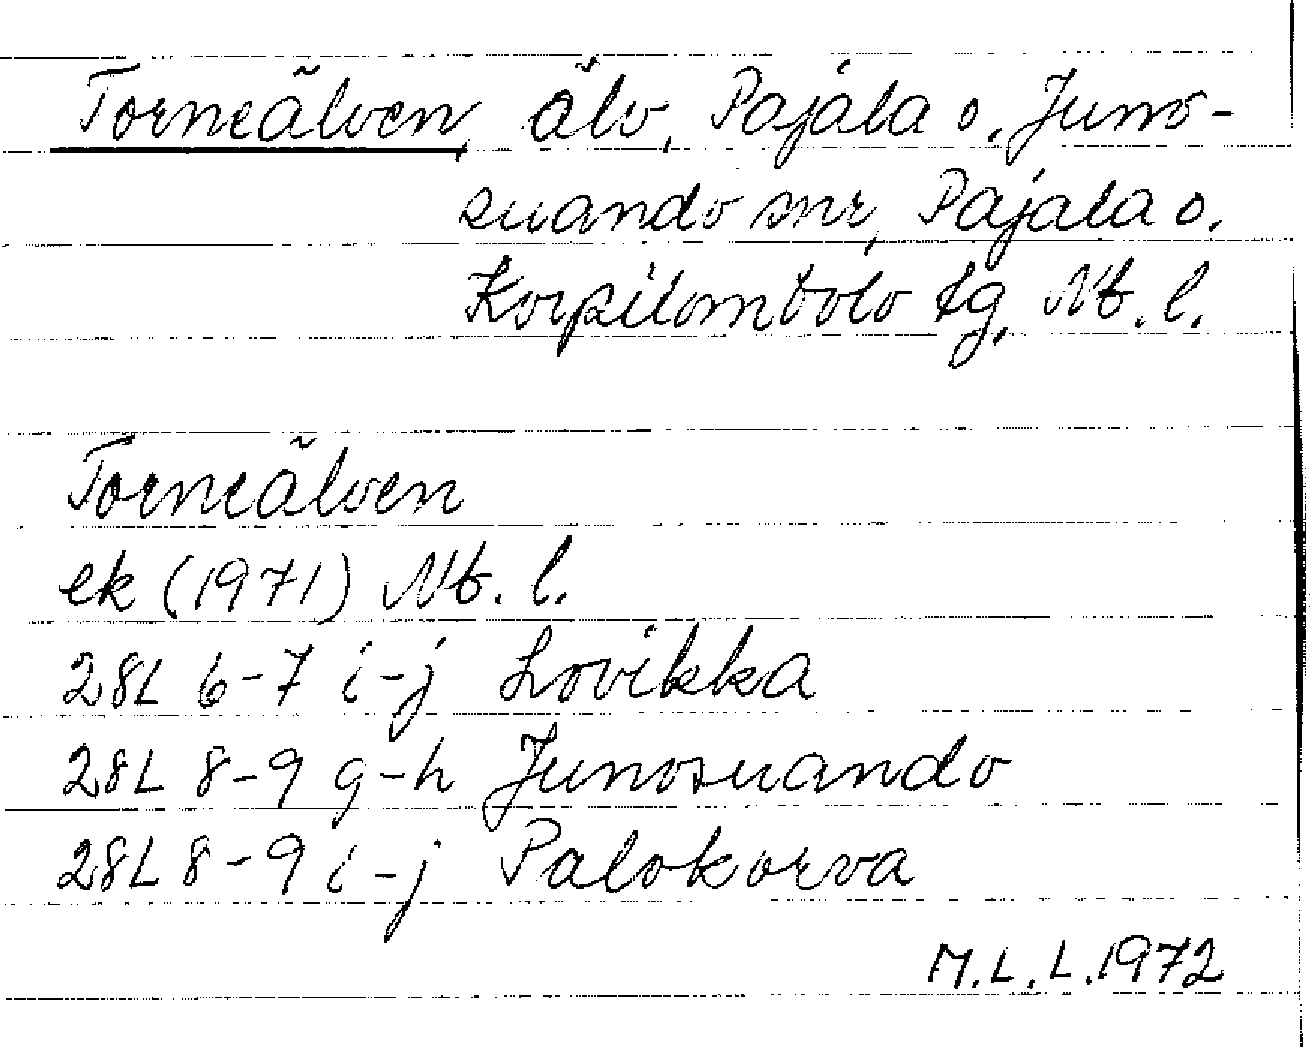 Torneälven, älv, Pajala o. Juno-
suando snr, Pajala o.
Korpilombolo tg, Nb. l.
Torneälven
ek (1971) Nb. l.
28L 6-7 i-j Lovikka
28L 8-9 g-h Junosuando
28L 8-9 i-j Palokorva
M.L.L.1972